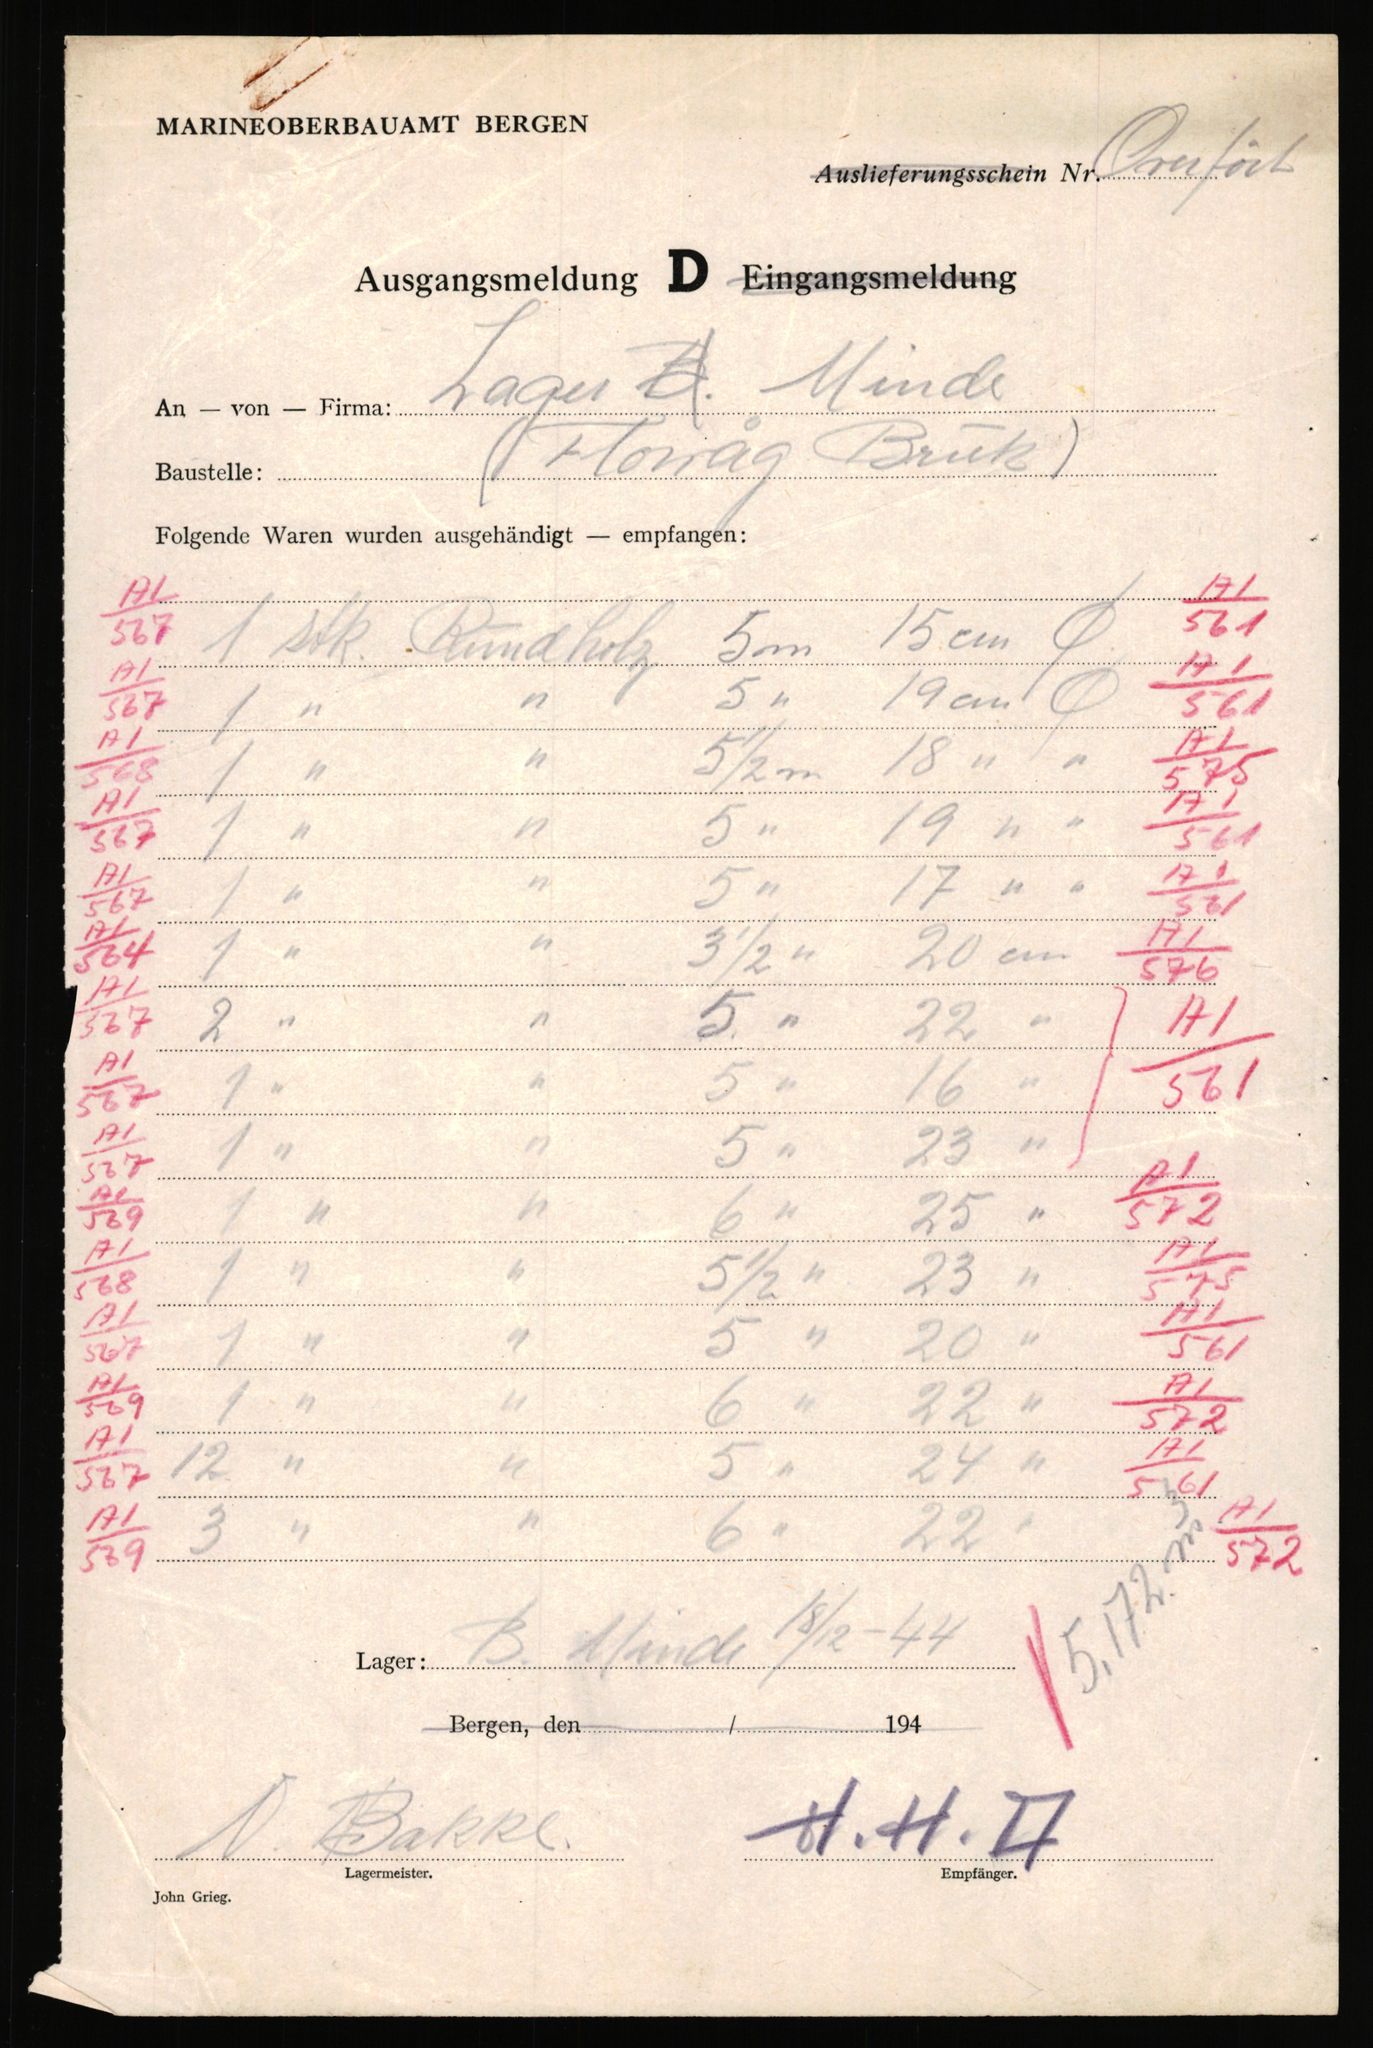 MARINEOBERBAUAMT BERGEN
Auslieferungsschein Nr. Overført
Ausgangsmeldung D Eingangsmeldung
An — von — Firma: Lager A. Minde
Baustelle: (Florvåg Bruk)
Folgende Waren wurden ausgehändigt — empfangen:
A1/567 1 stk. Rundholz 5 m 15 cm Ø A1/561
A1/567 1 " " 5 " 19 cm Ø A1/561
A1/568 1 " " 5 1/2 m 18 " " A1/575
A1/567 1 " " 5 " 19 " " A1/561
A1/567 1 " " 5 " 17 " " A1/561
A1/564 1 " " 3 1/2 " 20 cm A1/576
A1/567 2 " " 5. " 22 " A1/561
A1/567 1 " " 5 " 16 "
A1/567 1 " " 5 " 23 "
A1/569 1 " " 6 " 25 " A1/572
A1/568 1 " " 5 1/2 " 23 " A1/575
A1/567 1 " " 5 " 20 " A1/561
A1/569 1 " " 6 " 22 " A1/572
A1/567 12 " " 5 " 24 " A1/561
A1/569 3 " " 6 " 22 " A1/572
5,172 m³
Lager: B. Minde 18/12-44
Bergen, den / 194
N. Bakke. H.H.
Lagermeister. Empfänger.
John Grieg.